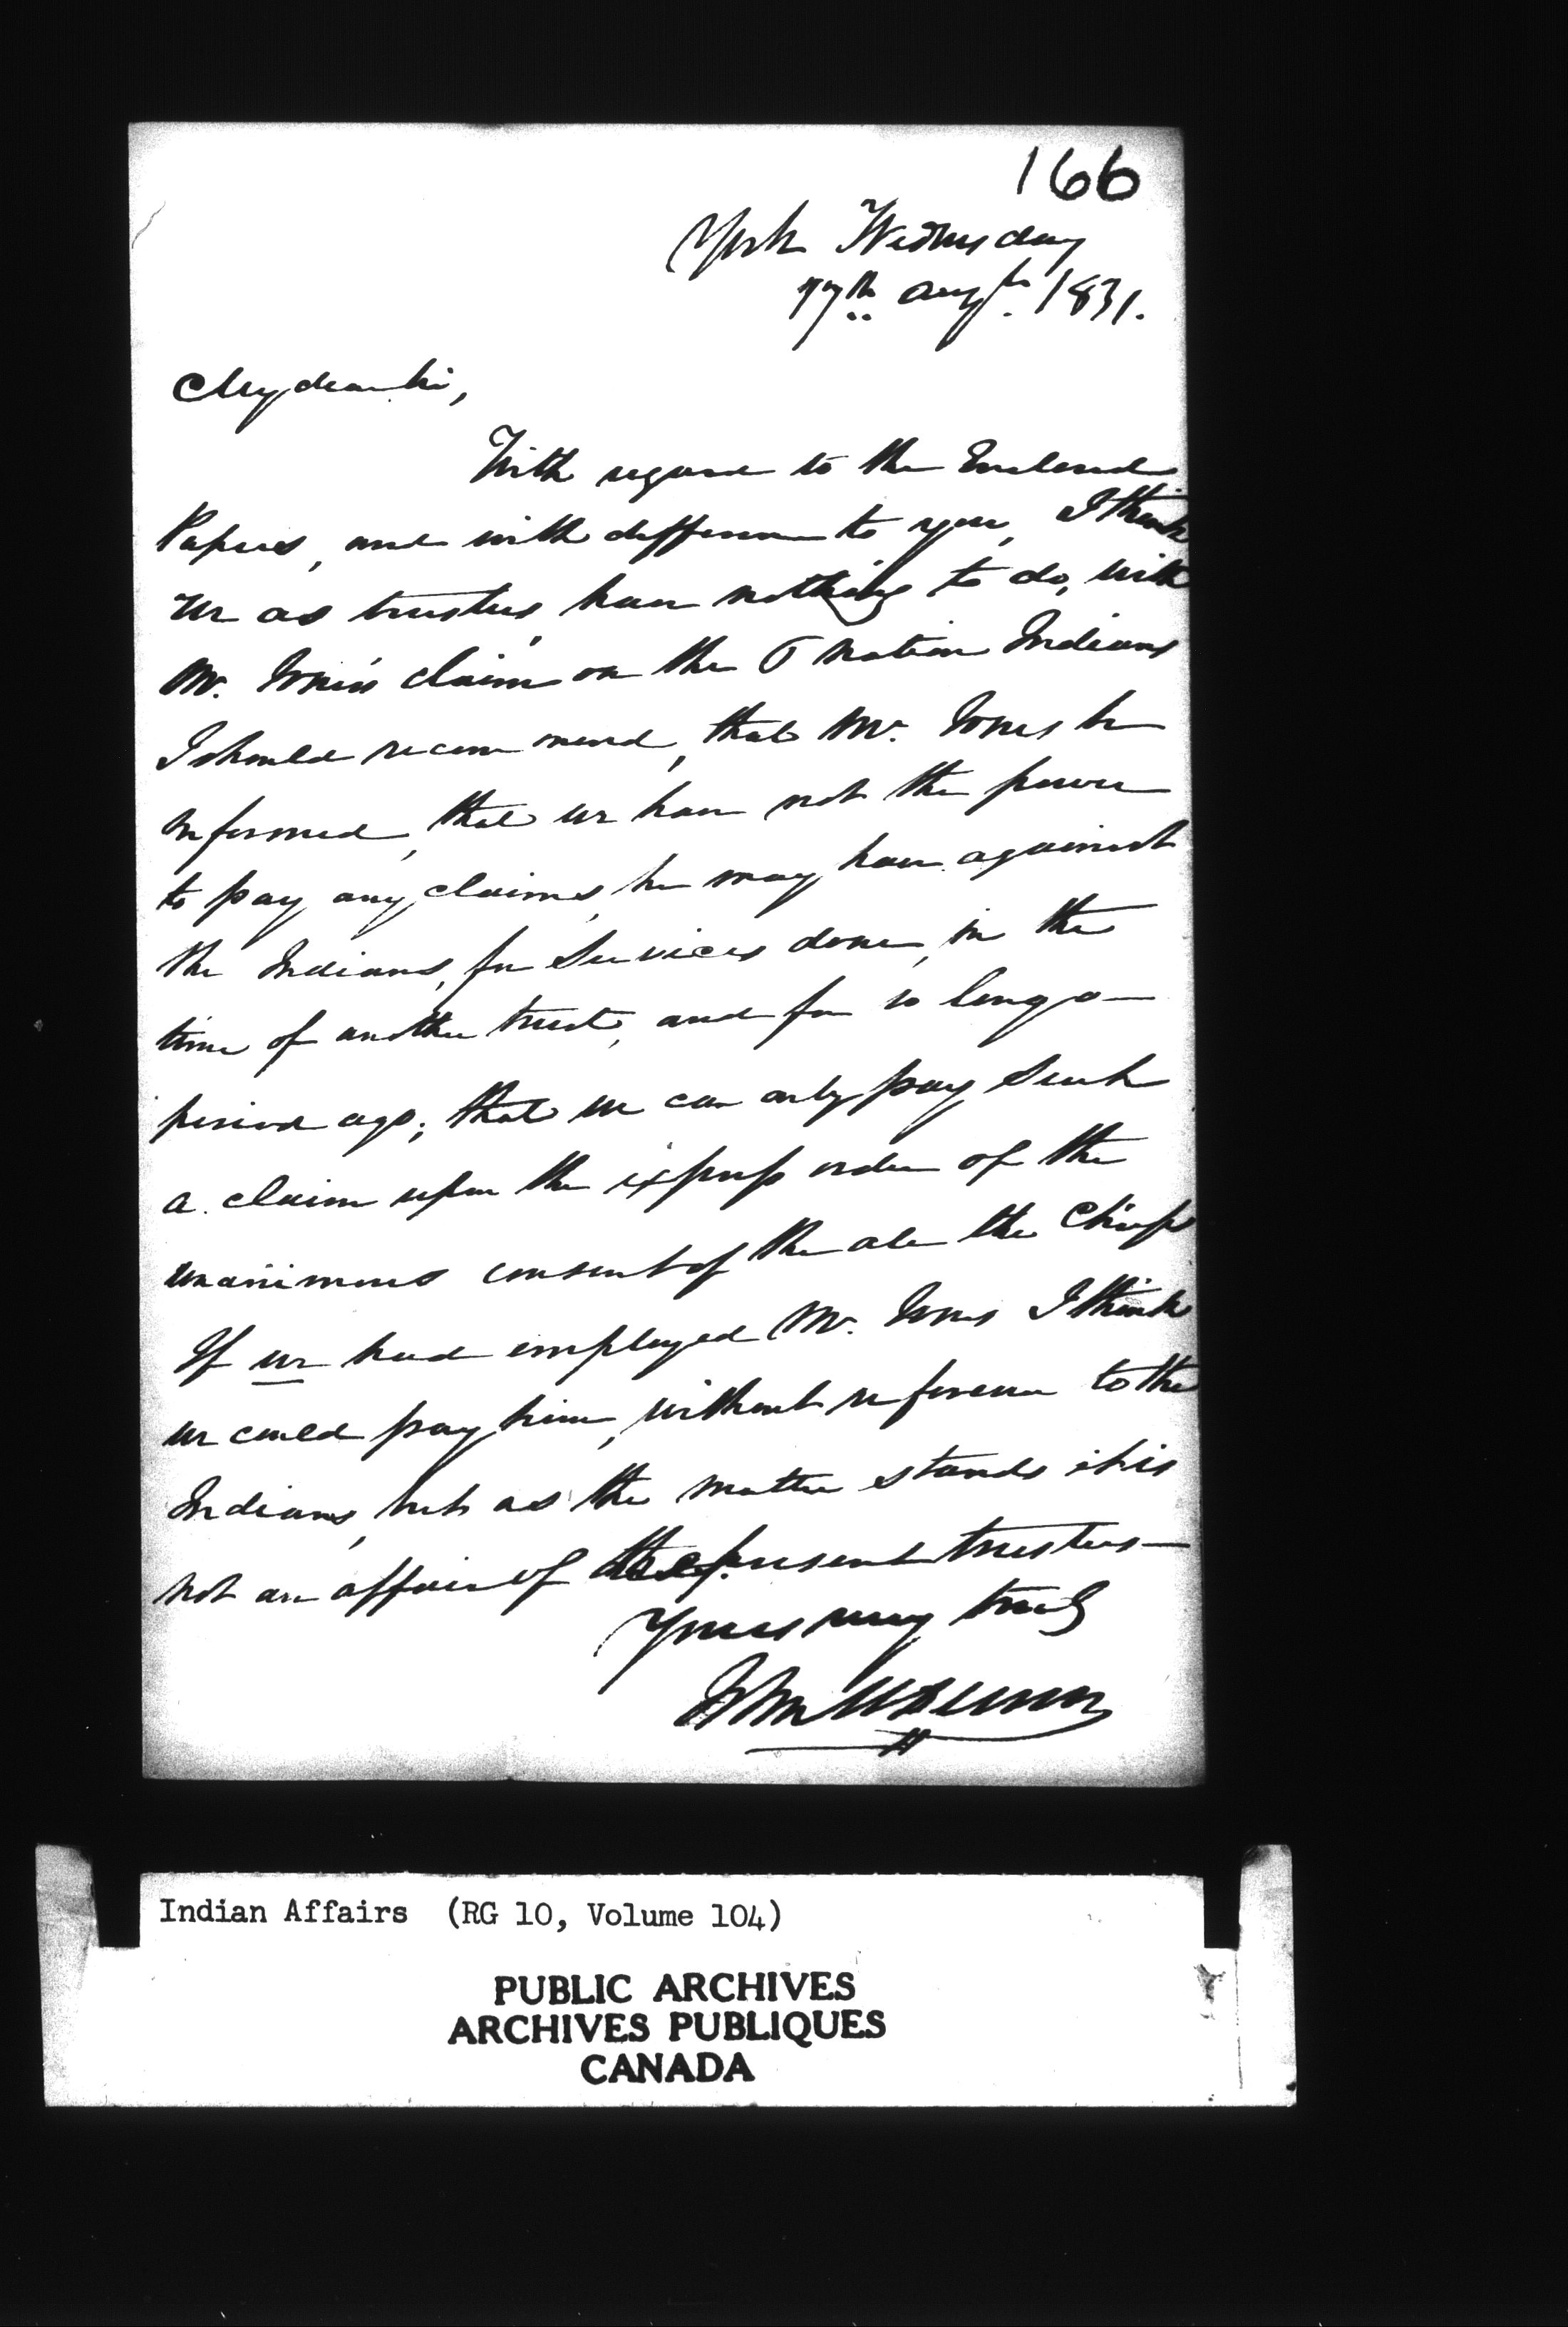 166
York Wednesday
17th Augt. 1831.
My dear Sir,
With regard to the Enclosed
Papers, and with defference to you, I think
we as trustees, have nothing to do, with
Mr. Jones's claim on the 6 Nation Indians
I should recommend, that Mr. Jones be
informed, that we have not the power
to pay any claims, he may have against
the Indians, for Services done, in the
time of another trust, and for so long a
period ago; that we can only pay such
a claim upon the express order of the
unanimous consent of the all the Chiefs
If we had employed Mr. Jones I think
we could pay him, without reference to the
Indians, but as the matter stands it is
not an affair of the present trustees—
Yours very truly
John H Dunn
Indian Affairs (RG 10, Volume 104)
PUBLIC ARCHIVES
ARCHIVES PUBLIQUES
CANADA